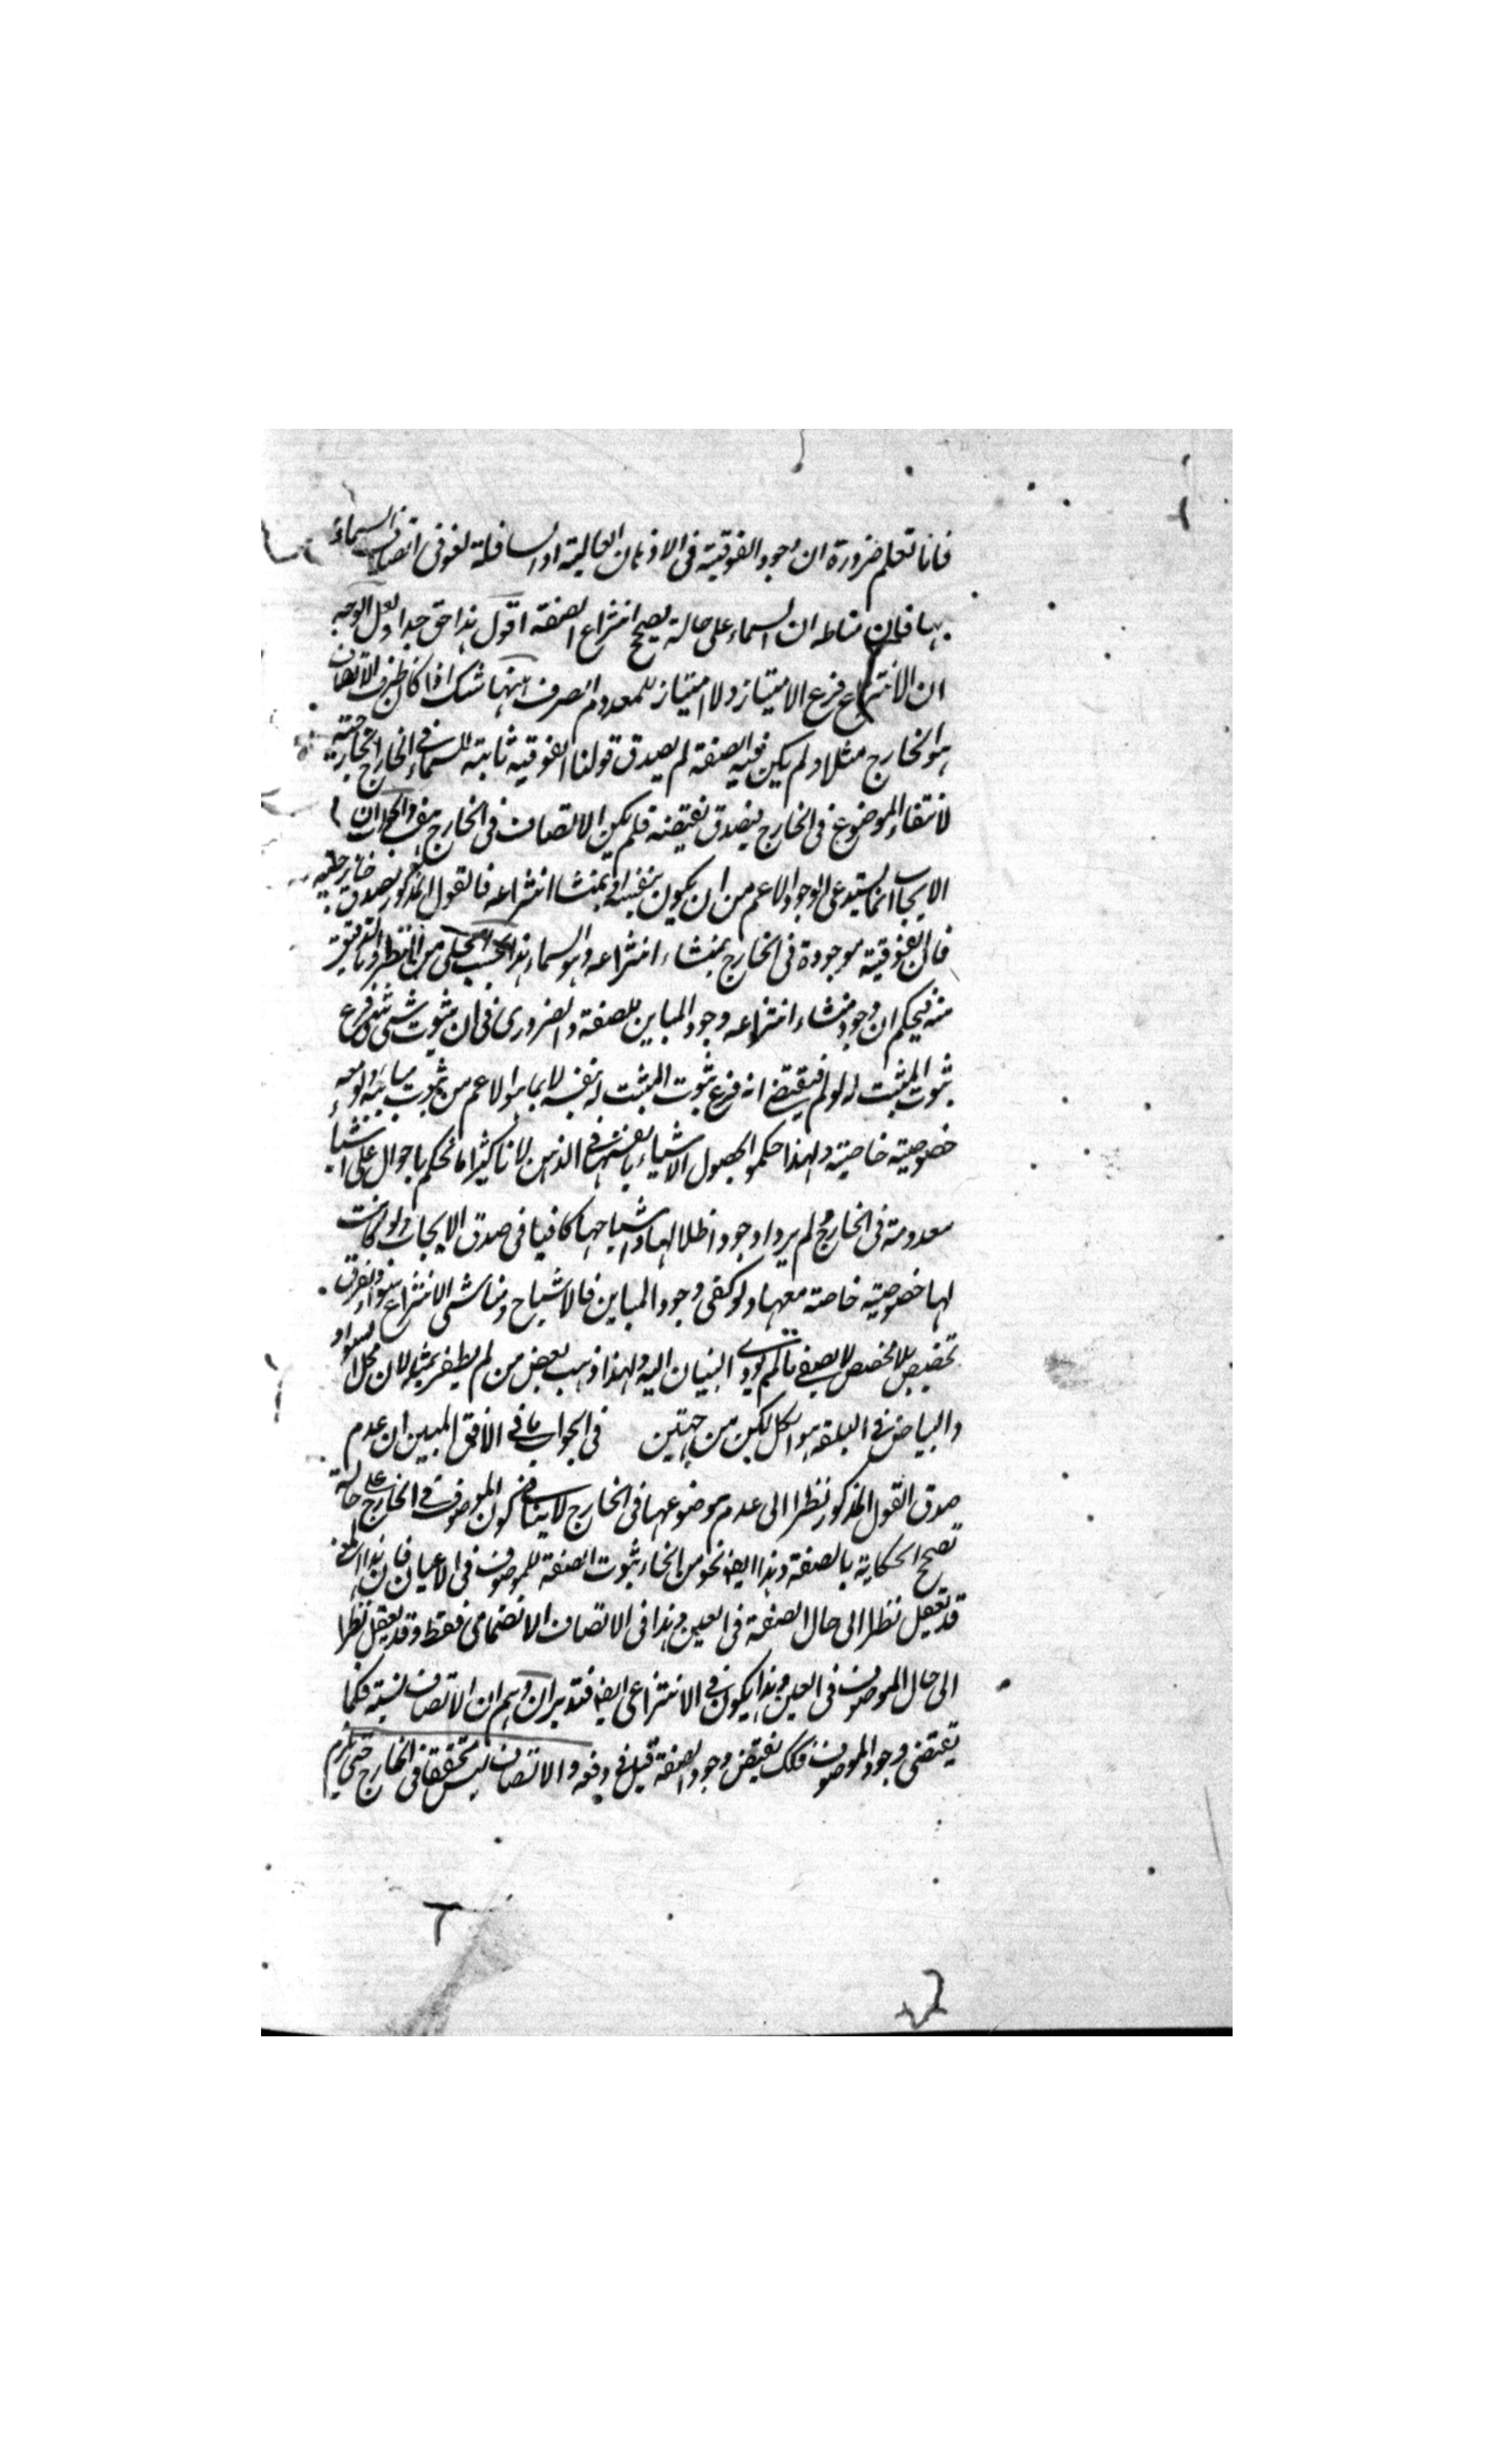 فانا نعلم ضرورة ان وجود الفوقية فى الاذهان العالية او السافلة لغو فى اتصاف السماء
بها فان مناطه ان السماء على حالة يصح انتزاع الصفة اقول هذا حق جدا ولعل الوجه
ان الانتزاع فرع الامتياز ولا امتياز للمعدوم الصرف ههنا شك اذا كان ظرف الاتصاف
هو الخارج مثلا ولم يكن فيه الصفة لم يصدق قولنا الفوقية ثابتة للسماء فى الخارج الخارجية
لانتفاء الموضوع فى الخارج فيصدق نقيضه فلم يكن الاتصاف فى الخارج هف والجواب ان
الايجاب انما يستدعى الوجود الاعم من ان يكون بنفسه او بمنشا انتزاعه فالقول المذكور يصدق خارجية
فان الفوقية موجودة فى الخارج بمنشاء انتزاعه وهو السماء هذا بحسب الجلى من النظر واما الدقيق
منه فيحكم ان وجود منشاء انتزاعه وجود المباين للصفة والضرورى فى ان ثبوت شئ لشئ فرع
ثبوت المثبت له لو لم فيقتضى انه فرع ثبوت المثبت له بنفسه لا بما هو الاعم من ثبوت مباينه ولو معه
خصوصية خاصية ولهذا حكموا بحصول الاشياء بانفسها فى الذهن لانا كثيرا ما نحكم باحوال على اشياء
معدومة فى الخارج ولم يروا وجود اظلالها واشباحها كافيا فى صدق الايجاب ولو كانت
لها خصوصية خاصة معها ولو كفى وجود المباين فالاشباح ومناشى الانتزاع سواء والفرق
تخصيص بلا مخصص لا يصغى ما لم يؤدى البنيان اليه ولهذا ذهب بعض من لم يظفر بمثله لان محل السواد
والبياض فى البلقة هو الكل لكن من جهتين فى الجواب ما فى الافق المبين ان عدم
صدق القول المذكور نظرا الى عدم موضوعها فى الخارج لا ينافى كون الموصوف فى الخارج على حالة
تصح الحكاية بالصفة وهذا ايضا نحو من انحاء ثبوت الصفة للموصوف فى الاعيان فان هذا المعنى
قد تعقل نظرا الى حال الصفة فى العين وهذا فى الاتصاف الانضمامى فقط وقد يعقل نظرا
الى حال الموصوف فى العين وهذا يكون فى الانتزاعى ايضا فتدبر ان وهم ان الاتصاف نسبة فكما
تقتضى وجود الموصوف فكك يقتضى وجود الصفة قيل فى دفعه والاتصاف ليس متحققا فى الخارج حتى يلزم